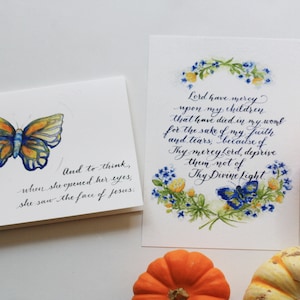 And to think,
when she opened her eyes,
she saw the face of Jesus.
Lord have mercy
upon my children
that have died in my womb
for the sake of my faith
and tears, because of
Thy mercy Lord, deprive
them not of
Thy Divine Light